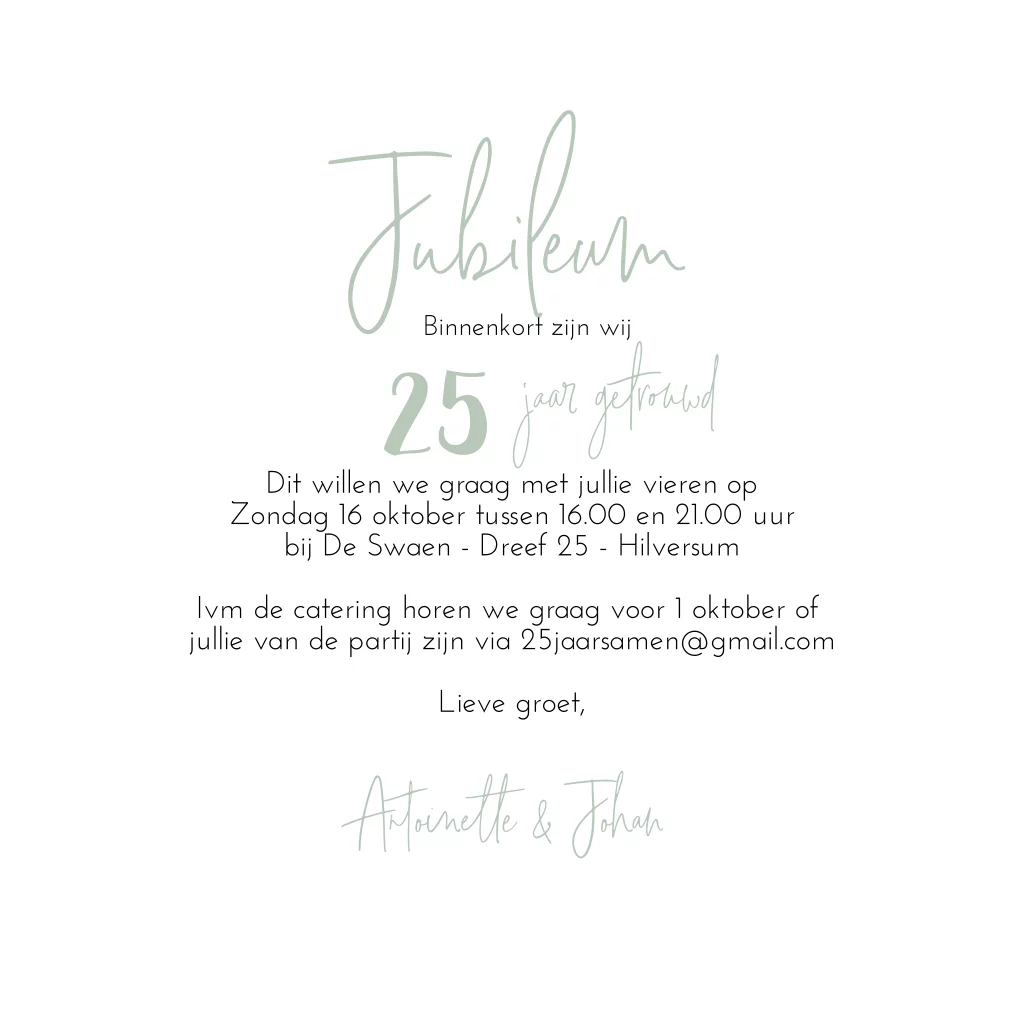 Jubileum
Binnenkort zijn wij
25 jaar getrouwd
Dit willen we graag met jullie vieren op
Zondag 16 oktober tussen 16.00 en 21.00 uur
bij De Swaen - Dreef 25 - Hilversum
Ivm de catering horen we graag voor 1 oktober of
jullie van de partij zijn via 25jaarsamen@gmail.com
Lieve groet,
Antoinette & Johan